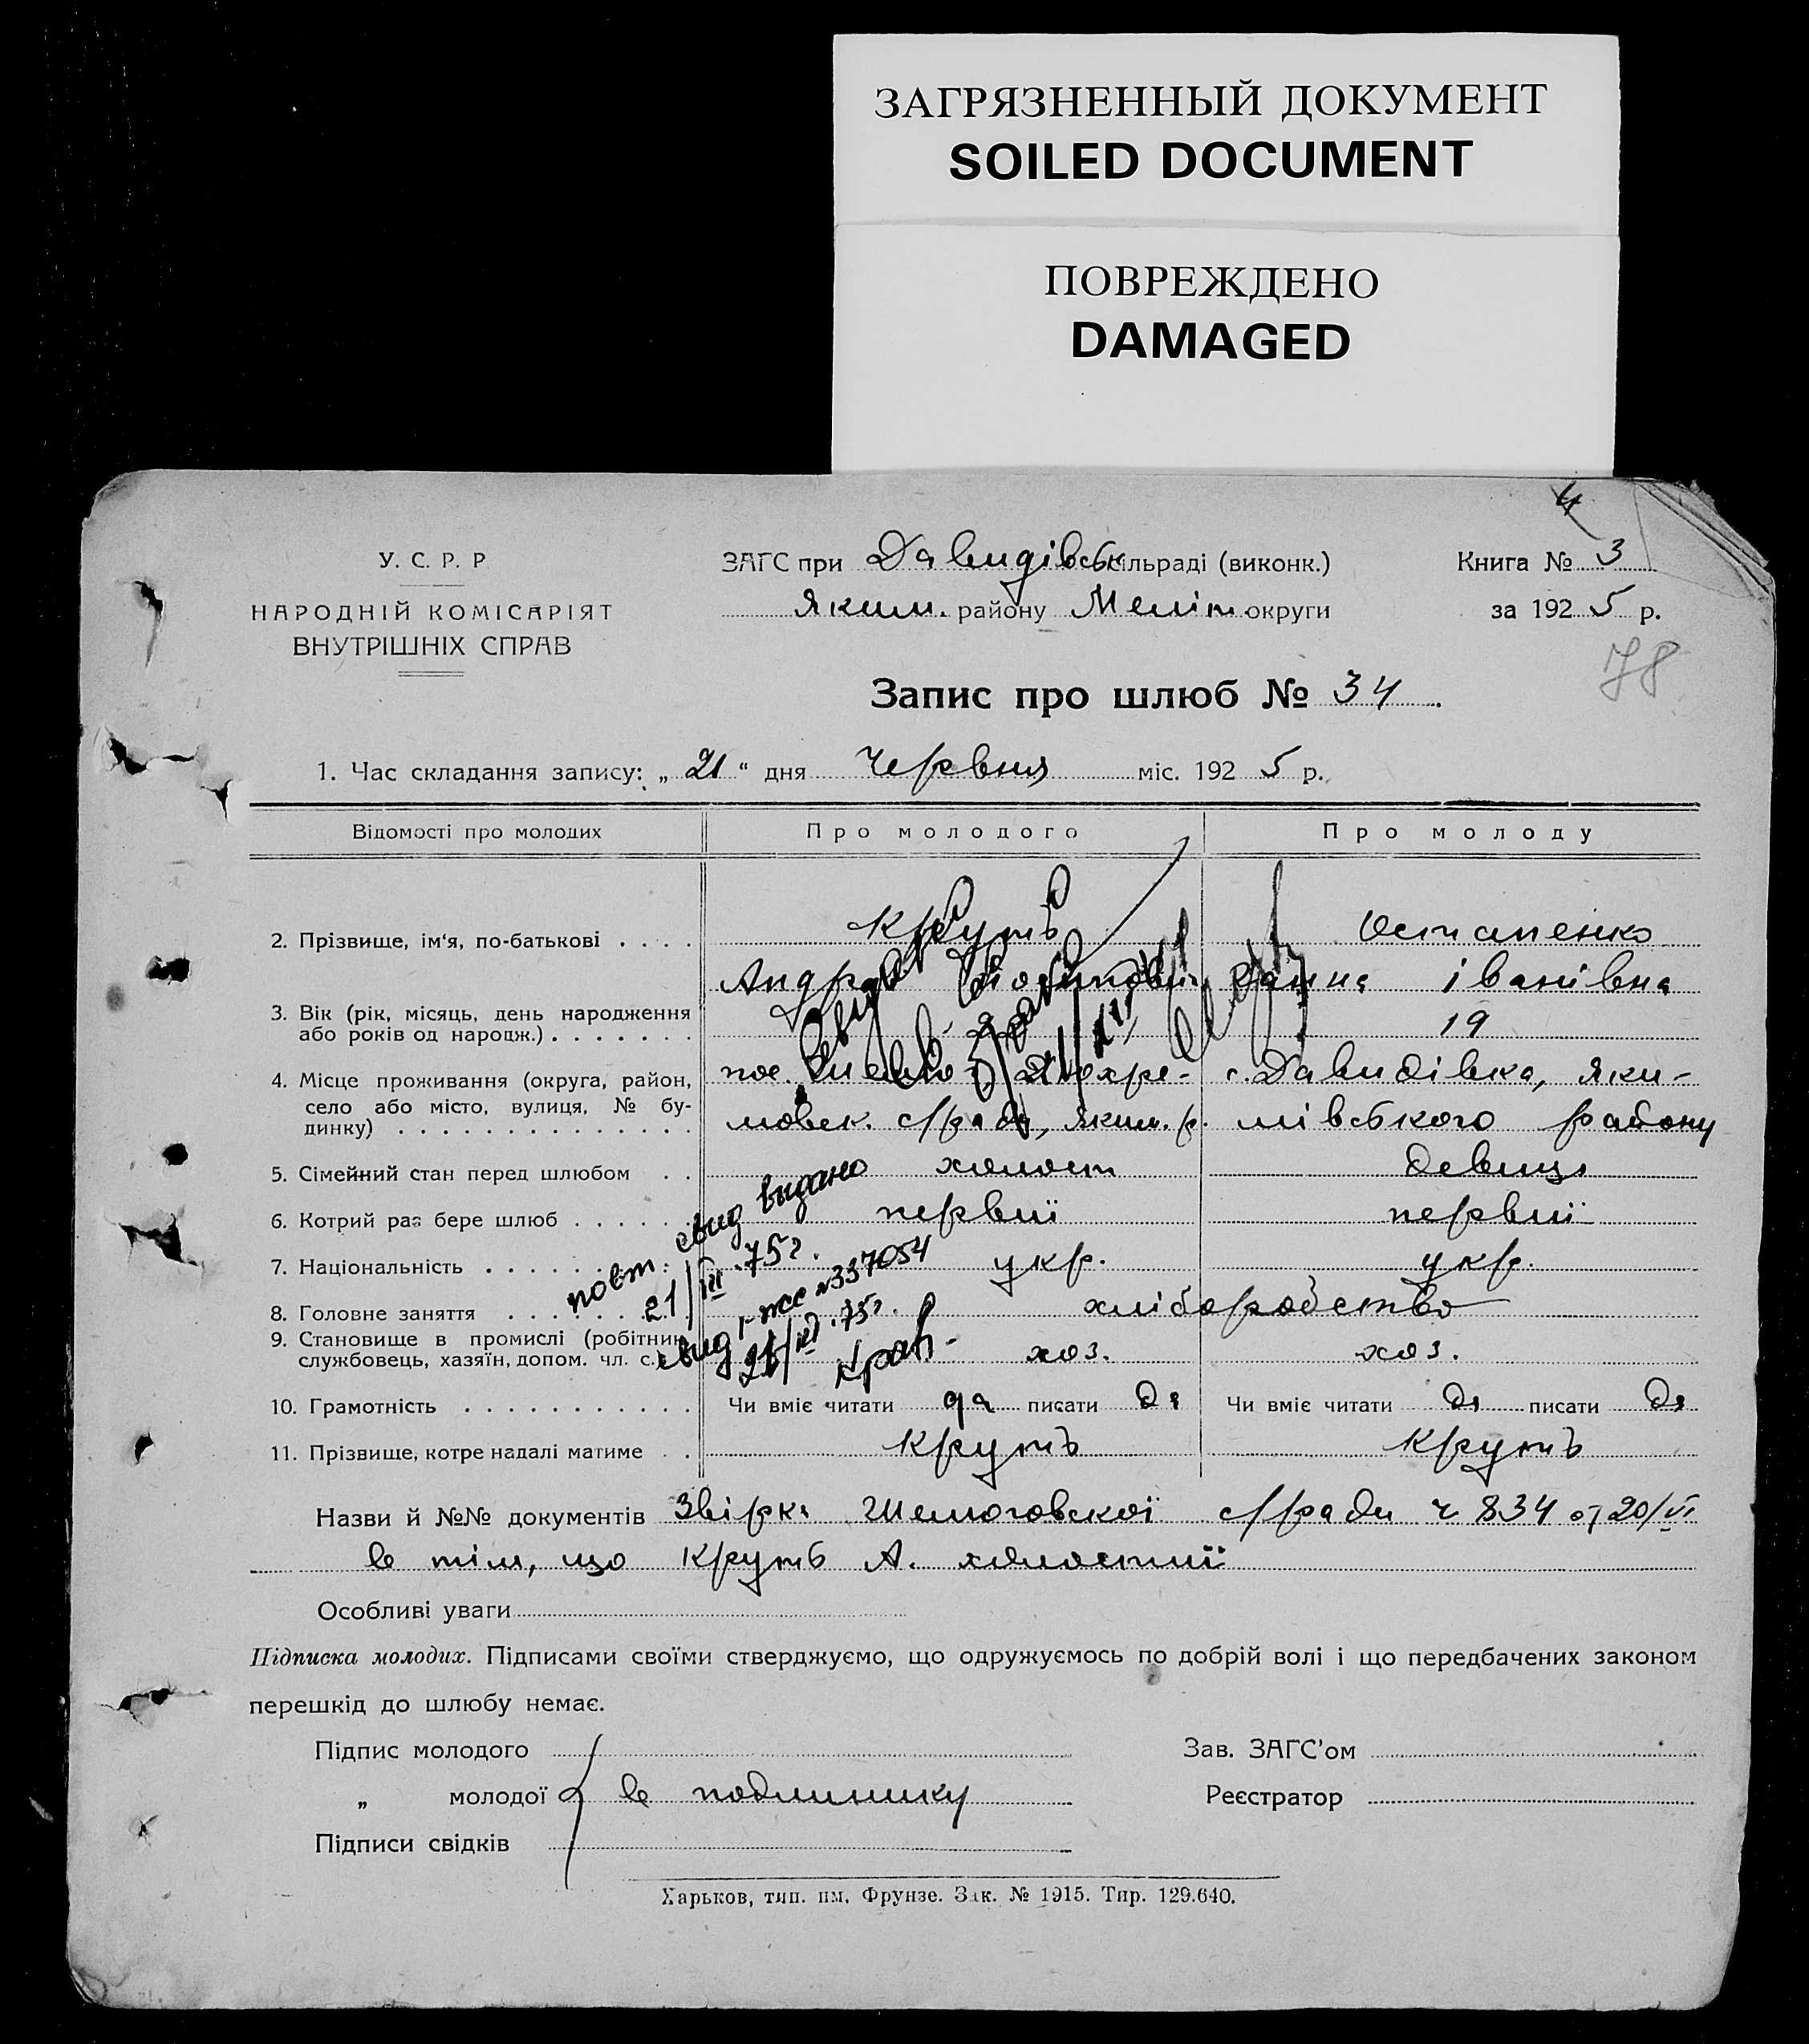 ЗАГРЯЗНЕННЫЙ ДОКУМЕНТ
SOILED DOCUMENT
ПОВРЕЖДЕНО
DAMAGED
4
У. С. Р. Р
НАРОДНІЙ КОМІСАРІЯТ
ВНУТРІШНІХ СПРАВ
ЗАГС при Давидівськ сільраді (виконк.)
Яким. району Меліт. округи
Книга № 3
за 1925 р.
78
Запис про шлюб № 34
1. Час складання запису: „ 21 “ дня Червня міс. 1925 р.
Відомості про молодих Про молодого Про молоду
2. Прізвище, ім‘я, по-батькові . . . . Круть Остапенко
Андрей Ганна Іванівна
3. Вік (рік, місяць, день народження
або років од народж.) . . . . . . . 19
4. Місце проживання (округа, район, пос. с. Давидівка, Яки-
село або місто, вулиця, № бу- мовск. с/ради, Яким. р. мівського району
динку) . . . . . . . . . . . . . .
5. Сімейний стан перед шлюбом . . холост девиця
6. Котрий раз бере шлюб . . . . . первиї первиї
7. Національність . . . . . . укр. укр.
8. Головне заняття . . . . . . хліборобство
9. Становище в промислі (робітник
службовець, хазяїн, допом. чл. с. хоз. хоз.
повт. свид выдано
21/III 75г.
свид I-жс №337054
21/III 75г.
10. Грамотність . . . . . . . . . . . Чи вміє читати да писати да Чи вміє читати да писати да
11. Прізвище, котре надалі матиме . . Круть Круть
Назви й №№ документів Звірка с/ради ч 834 от 20/VI
в тім, що Круть А. холостиї
Особливі уваги
Підписка молодих. Підписами своїми стверджуємо, що одружуємось по добрій волі і що передбачених законом
перешкід до шлюбу немає.
Підпис молодого
„ молодої в подлиннику
Підписи свідків
Зав. ЗАГС’ом
Реєстратор
Харьков, тип. им. Фрунзе. Зак. № 1915. Тир. 129.640.